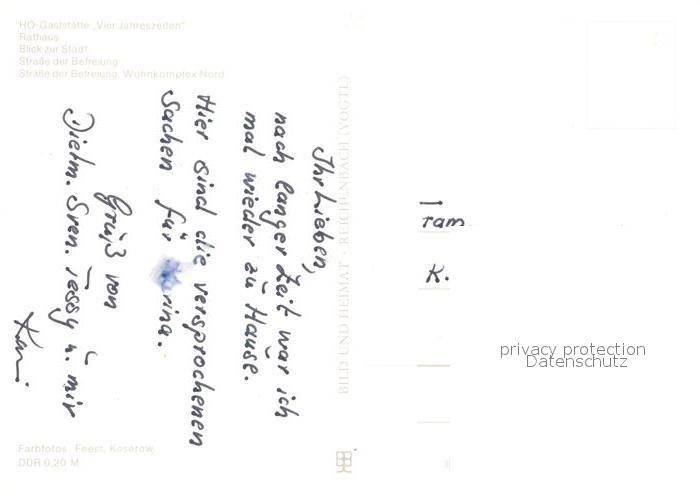 HO-Gaststätte „Vier Jahreszeiten"
Rathaus
Blick zur Stadt
Straße der Befreiung
Straße der Befreiung, Wohnkomplex Nord
Ihr Lieben,
nach langer Zeit war ich
mal wieder zu Hause.
Hier sind die versprochenen
Sachen für rina.
Gruß von
Dietm. Sven. Tessy u. mir
Farbfotos: Feest, Koserow
DDR 0,20 M
BILD UND HEIMAT · REICHENBACH (VOGTL)
ram
K.
privacy protection
Datenschutz